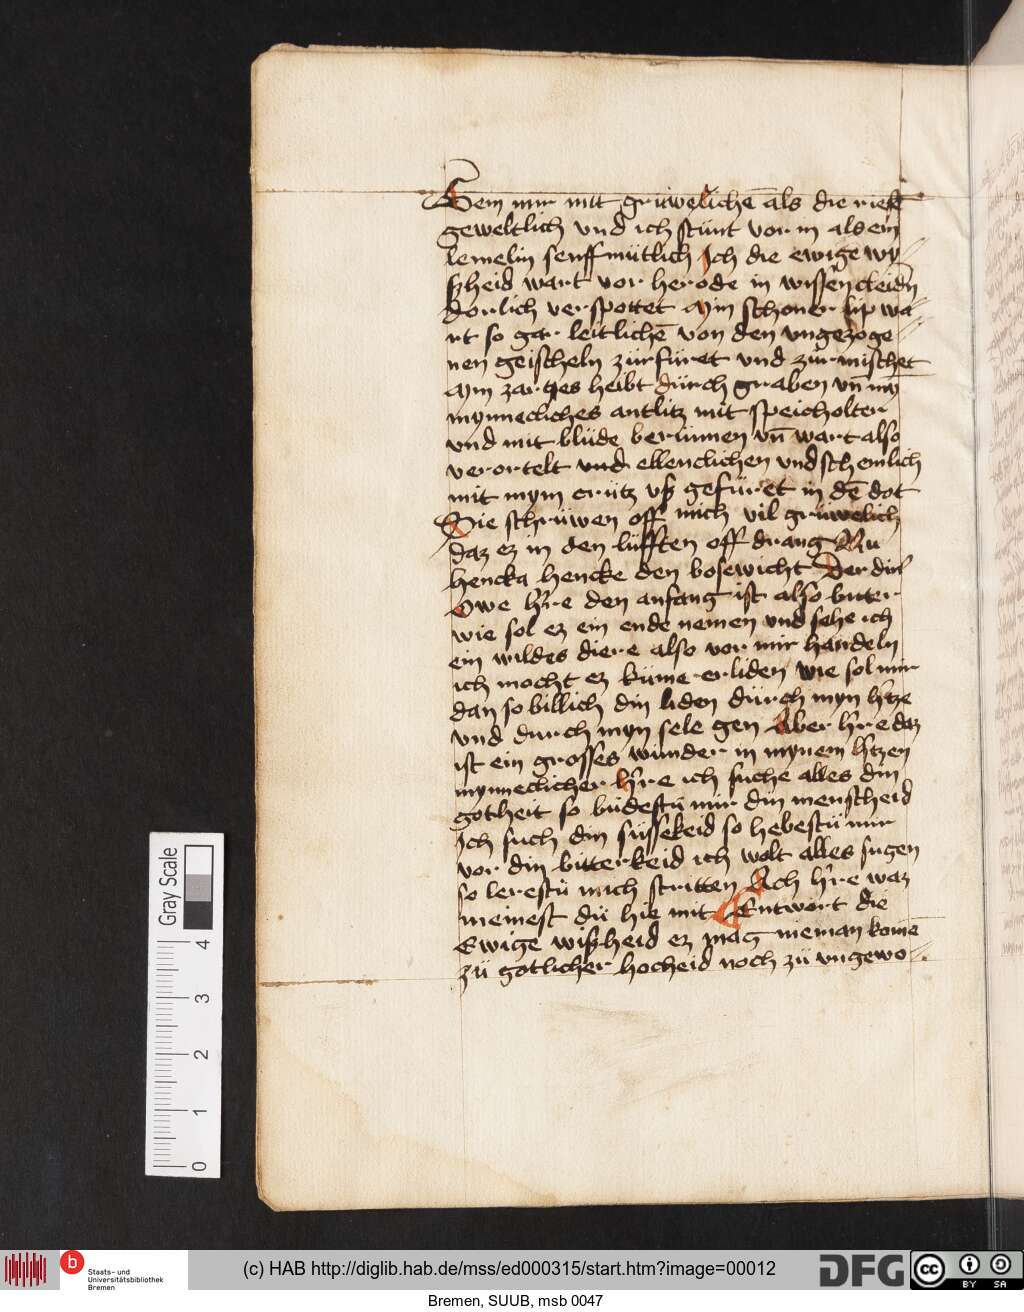 Sein mir mit grúwelichē als die riesē
geweltlich vnd ich stúnt vor in als ein
lemelin senffmútlich Ich die ewige wy
ßheid wart vor herode in wissen cleidn̄
dorlich verspottet Min schoner lip wa
rt so gar leitlichē von den vngezoge
nen geischeln zúrfúret vnd zúrmischet
Min zartes heibt dúrch graben vn̄ my̅
mynnecliches antlitz mit speicholter
vnd mit blúde berúnnen vn̄ wart also
verortelt vnd ellenclichen vnd schemlich
mit mym crútz vß gefúret in dē dot
Sie schrúwen off mich vil grúwelich
daz ez in den lúfften off drang Nu
hencka hencke den bosewicht Der din̄
Owe h're den anfang ist also bitter
wie sol ez ein ende nemen vnd sehe ich
ein wildes diere also vor mir handeln
ich mocht ez kúme erliden wie sol mir
dan so billich din liden dúrch myn h'tze
vnd durch myn sele gen Aber h're daz
ist ein grosses wúnder in mynem h'tzen
mynneclicher h're ich suche alles din
gotheit so búdestú mir din menscheid
Ich such din sússekeid so hebestú mir
vor din bitterkeid ich wolt alles sugen
so lerestú mich stritten Ach h're waz
meinest dú hie mit Entwort die
Ewige wißheid ez mag nieman komē
zú gotlicher hocheid noch zú vngewo
Gray Scale
4
3
2
1
0
b
Staats- und
Universitätsbibliothek
Bremen
(c) HAB http://diglib.hab.de/mss/ed000315/start.htm?image=00012
DFG
cc
BY SA
Bremen, SUUB, msb 0047